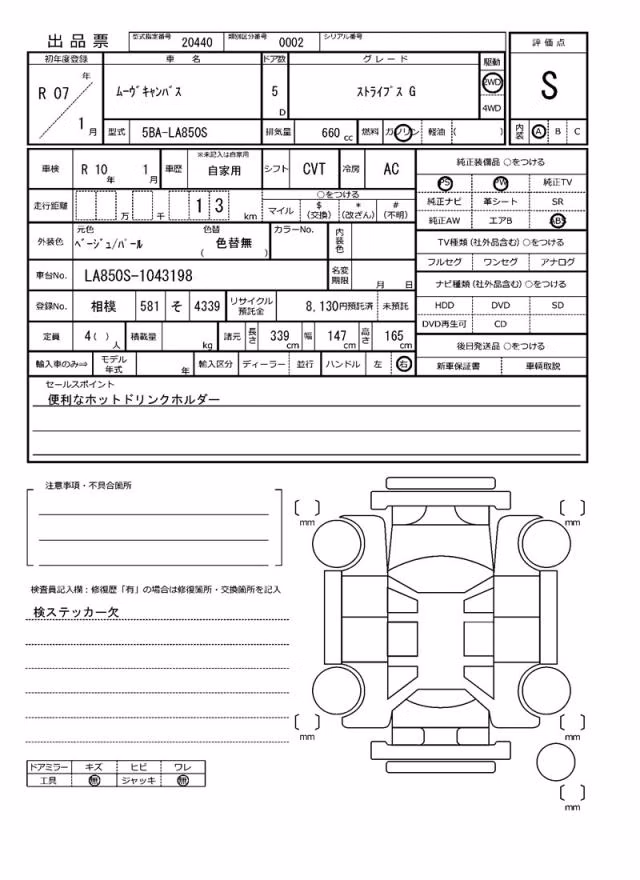 出品票 型式指定番号 20440 類別区分番号 0002 シリアル番号
評価点
S
初年度登録 車名 ドア数 グレード 駆動
R 07 年 1 月 ムーヴキャンバス 5 D ストライプス G 2WD 4WD
型式 5BA-LA850S 排気量 660 cc 燃料 ガソリン 軽油 ( )
内装 A B C
車検 R 10 年 1 月 車歴 ※未記入は自家用 自家用 シフト CVT 冷房 AC
走行距離 万 千 1 3 km
○をつける
マイル $(交換) *(改ざん) #(不明)
外装色 元色 ベージュ/パール 色替 色替無 ( ) カラーNo. 内装色
車台No. LA850S-1043198 名変期限 月 日
登録No. 相模 581 そ 4339 リサイクル預託金 8,130円預託済 未預託
定員 4( ) 人 積載量 kg 諸元 長さ 339 cm 幅 147 cm 高さ 165 cm
輸入車のみ⇒ モデル年式 年 輸入区分 ディーラー 並行 ハンドル 左 右
純正装備品 ○をつける
PS PW 純正TV
純正ナビ 革シート SR
純正AW エアB ABS
TV種類 (社外品含む) ○をつける
フルセグ ワンセグ アナログ
ナビ種類 (社外品含む) ○をつける
HDD DVD SD
DVD再生可 CD
後日発送品 ○をつける
新車保証書 車輌取説
セールスポイント
便利なホットドリンクホルダー
注意事項・不具合箇所
検査員記入欄：修復歴「有」の場合は修復箇所・交換箇所を記入
検ステッカー欠
mm
mm
mm
mm
mm
ドアミラー キズ ヒビ ワレ
工具 無 ジャッキ 無